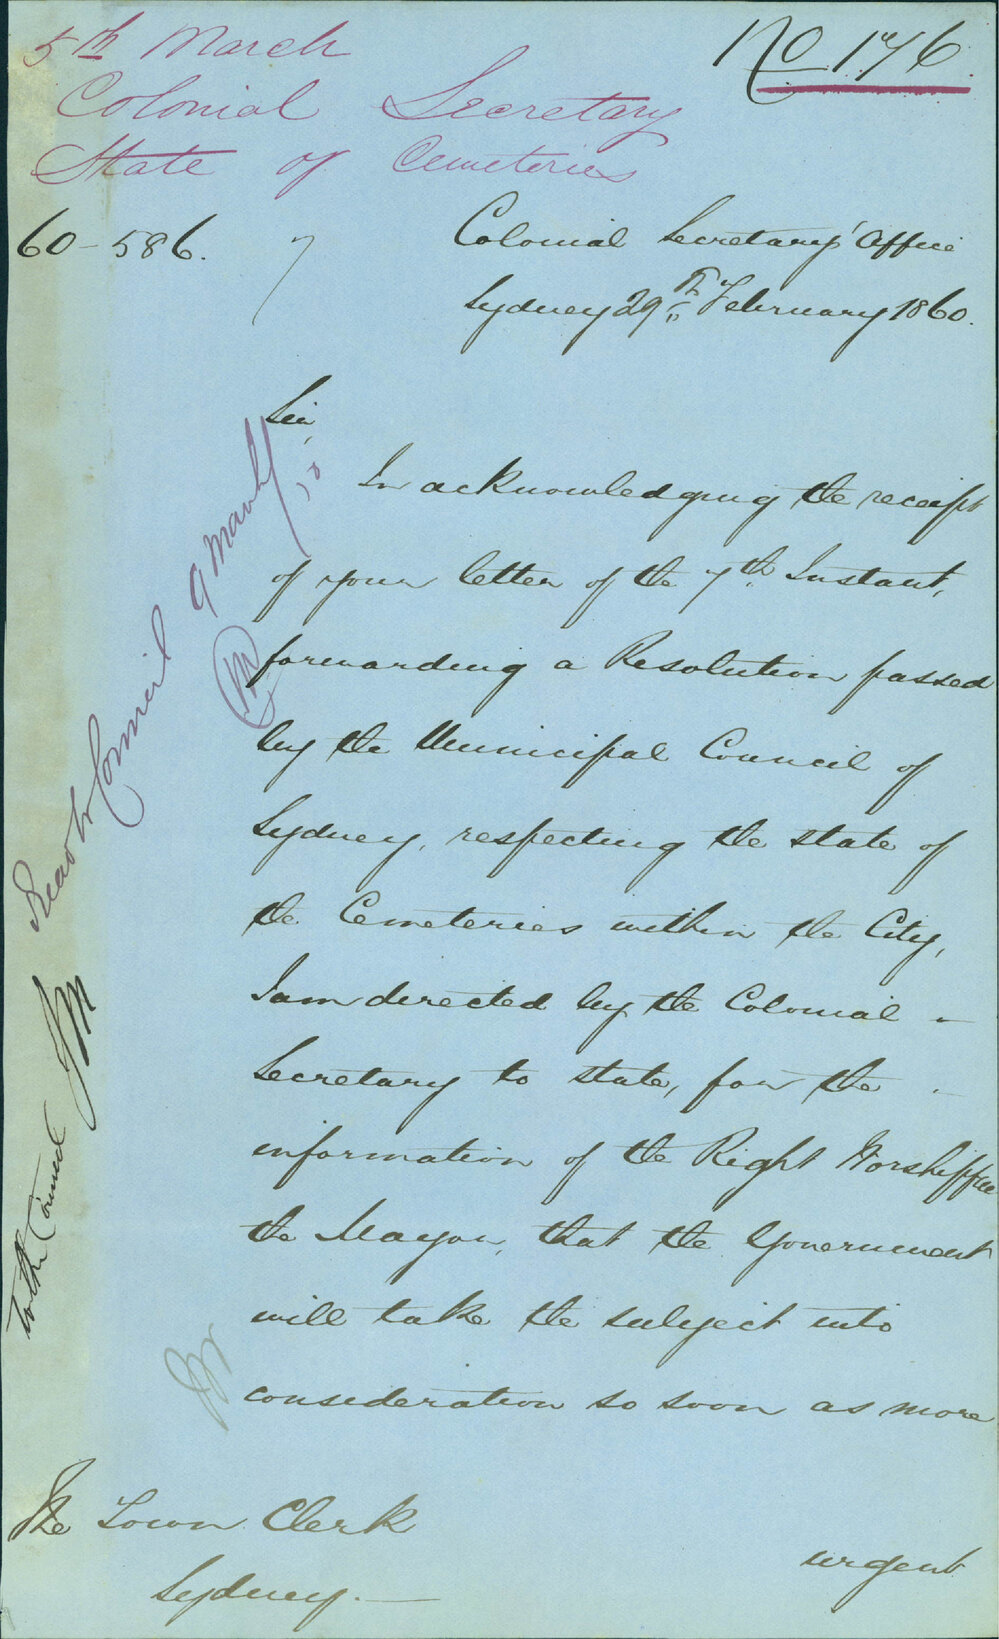 No 176.
5th March
Colonial Secretary
State of Cemeteries
60-586.
Colonial Secretary's Office
Sydney 29th February 1860.
Sir,
In acknowledging the receipt
of your letter of the 7th Instant,
forwarding a Resolution passed
by the Municipal Council of
Sydney, respecting the state of
the Cemeteries within the City,
I am directed by the Colonial -
Secretary to state, for the -
information of the Right Worshipful
the Mayor, that the Government
will take the subject into
consideration so soon as more
urgent
The Town Clerk
Sydney. —
Read to Council 9 March/
To the Council JM